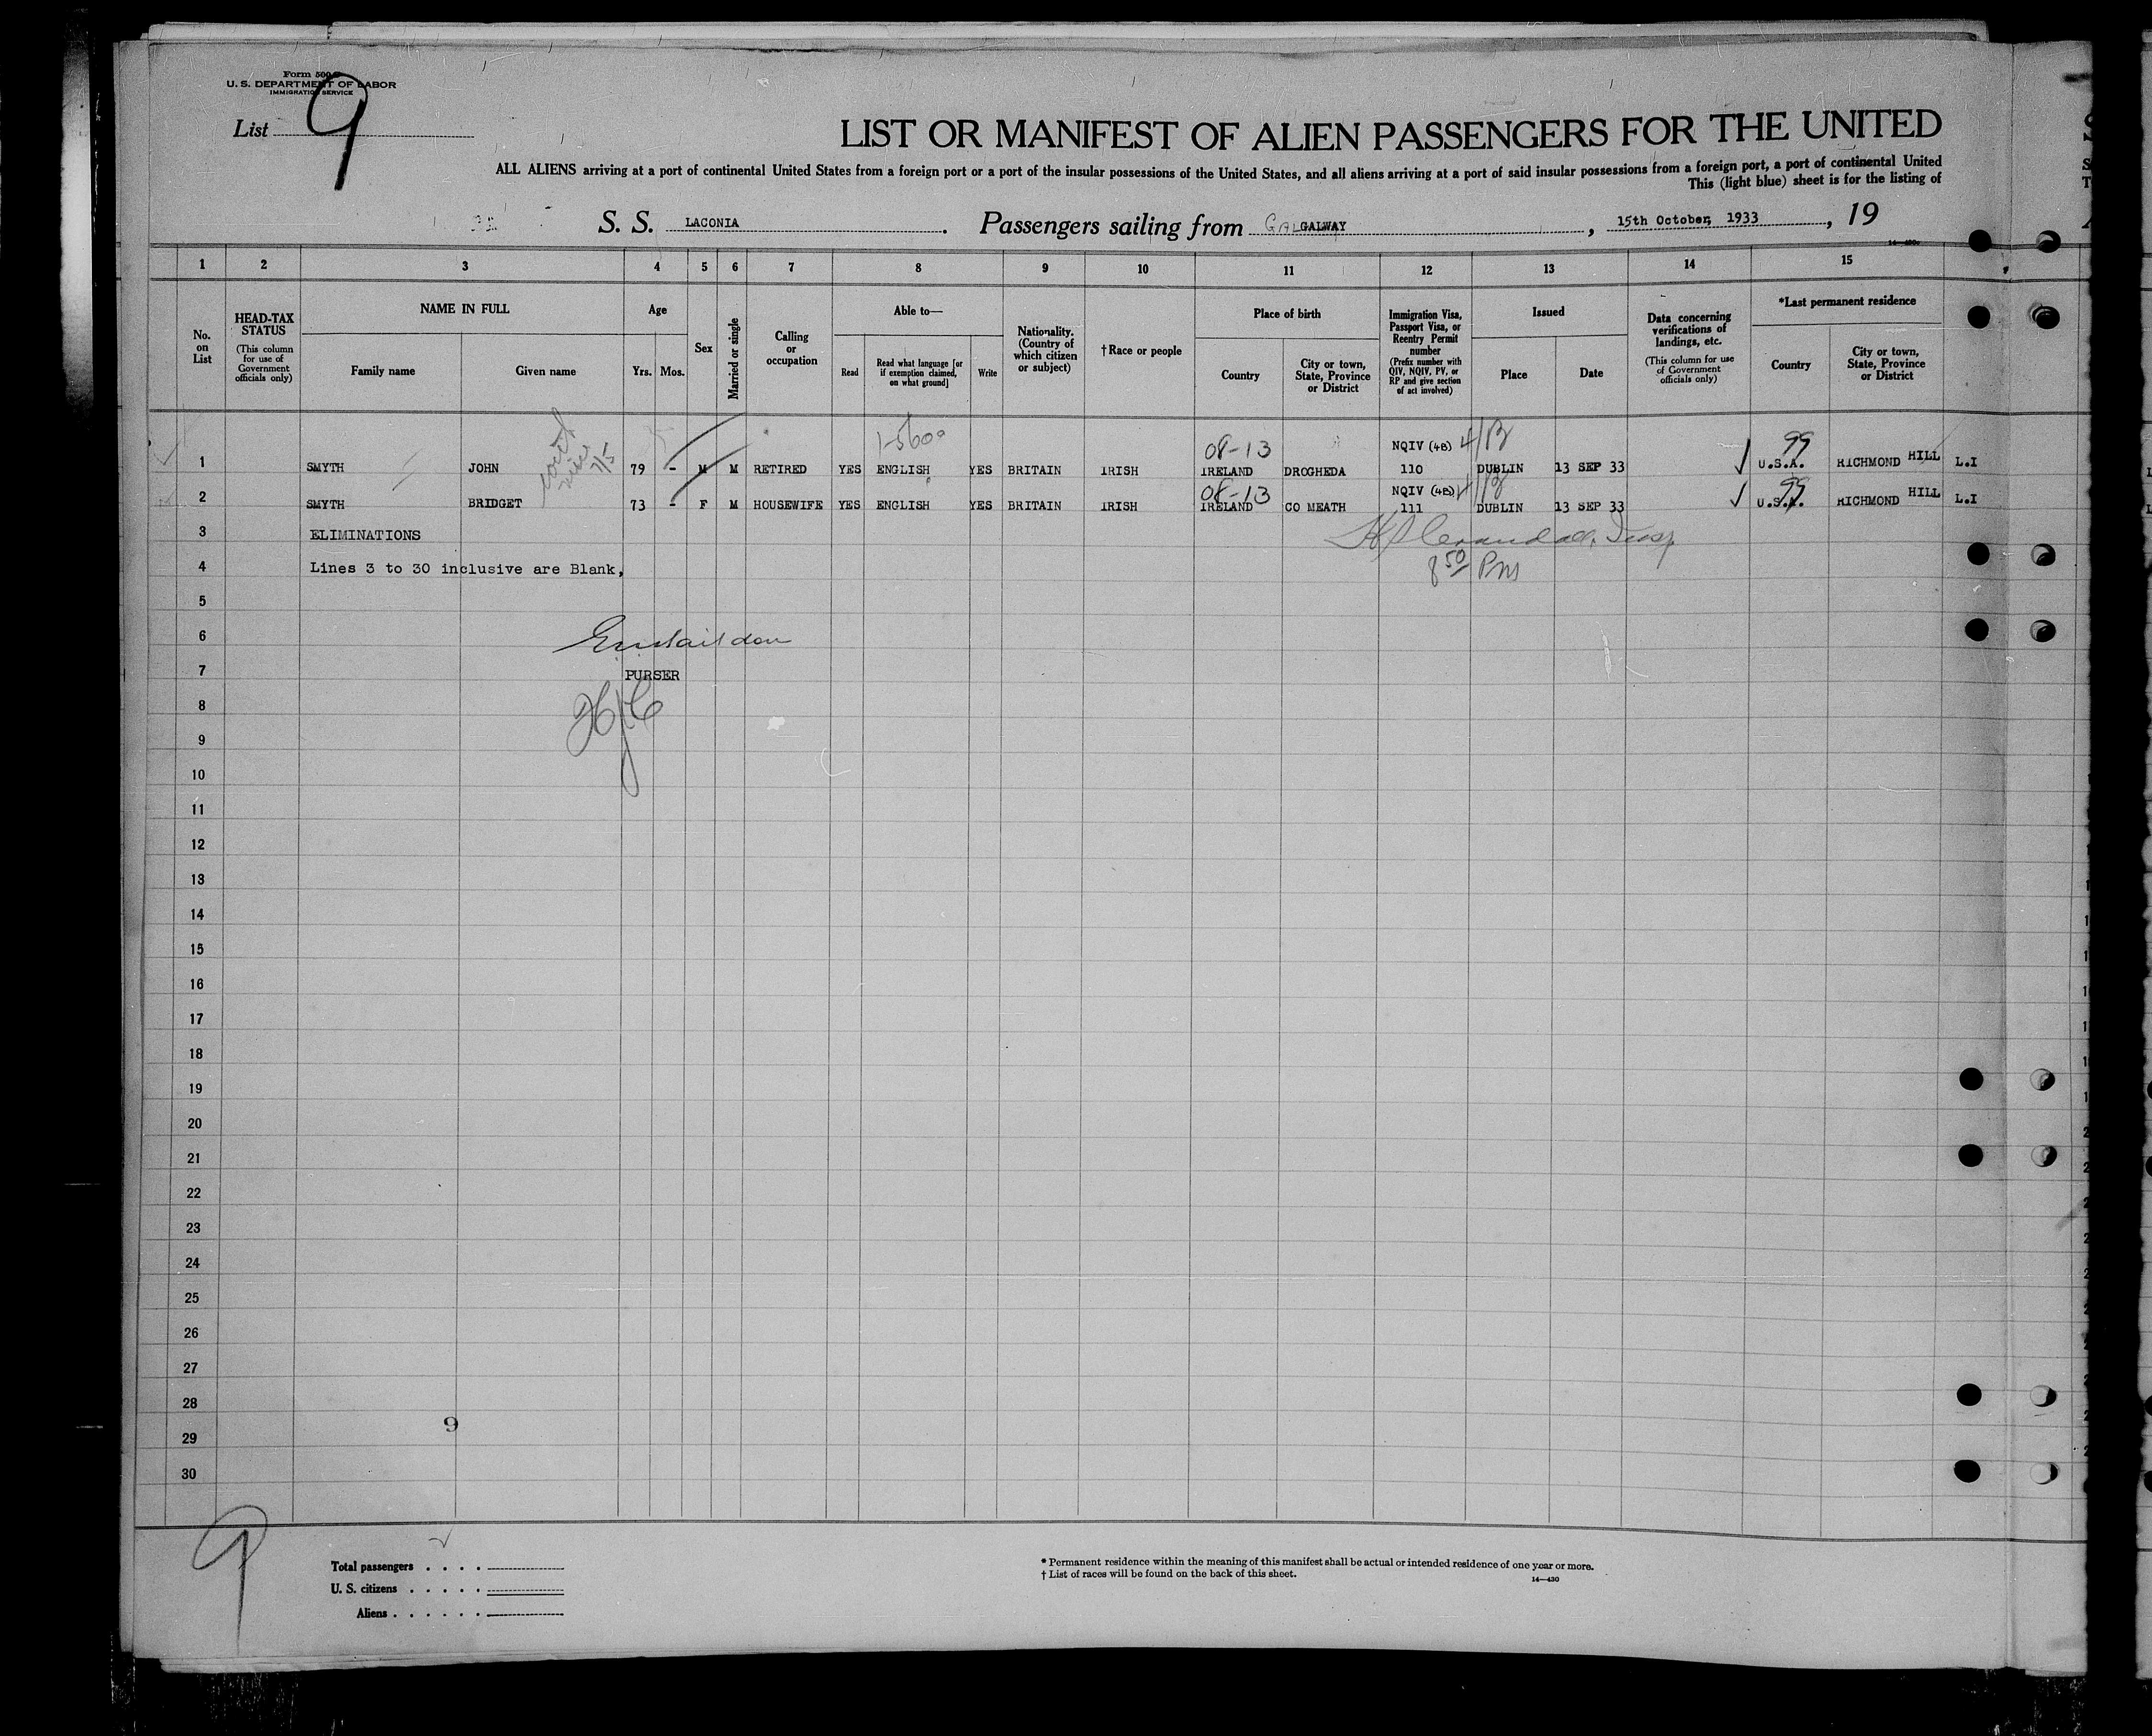 Form 500
U. S. DEPARTMENT OF LABOR
IMMIGRATION SERVICE
List 9
LIST OR MANIFEST OF ALIEN PASSENGERS FOR THE UNITED
ALL ALIENS arriving at a port of continental United States from a foreign port or a port of the insular possessions of the United States, and all aliens arriving at a port of said insular possessions from a foreign port, a port of continental United
This (light blue) sheet is for the listing of
S. S. LACONIA. Passengers sailing from GALWAY, 15th October, 1933, 19
1 2 3 4 5 6 7 8 9 10 11 12 13 14 15
No. on List
HEAD-TAX STATUS (This column for use of Government officials only)
NAME IN FULL
Family name
Given name
Age
Yrs.
Mos.
Sex
Married or single
Calling or occupation
Able to—
Read
Read what language [or if exemption claimed, on what ground]
Write
Nationality. (Country of which citizen or subject)
†Race or people
Place of birth
Country
City or town, State, Province or District
Immigration Visa, Passport Visa, or Reentry Permit number (Prefix number with QIV, NQIV, PV, or RP and give section of act involved)
Issued
Place
Date
Data concerning verifications of landings, etc. (This column for use of Government officials only)
*Last permanent residence
Country
City or town, State, Province or District
08-13 NQIV (4B) 4/B 99
1 SMYTH JOHN 79 - M M RETIRED YES ENGLISH YES BRITAIN IRISH IRELAND DROGHEDA 110 DUBLIN 13 SEP 33 U.S.A. RICHMOND HILL L.I
08-13 NQIV (4B) 4/B 99
2 SMYTH BRIDGET 73 - F M HOUSEWIFE YES ENGLISH YES BRITAIN IRISH IRELAND CO MEATH 111 DUBLIN 13 SEP 33 U.S.A. RICHMOND HILL L.I
3 ELIMINATIONS
4 Lines 3 to 30 inclusive are Blank,
8 50 PM
5
6
7 PURSER
8
9
10
11
12
13
14
15
16
17
18
19
20
21
22
23
24
25
26
27
28
9
29
30
9
Total passengers . . . .
U. S. citizens . . . . .
Aliens . . . . . .
* Permanent residence within the meaning of this manifest shall be actual or intended residence of one year or more.
† List of races will be found on the back of this sheet.
14—430